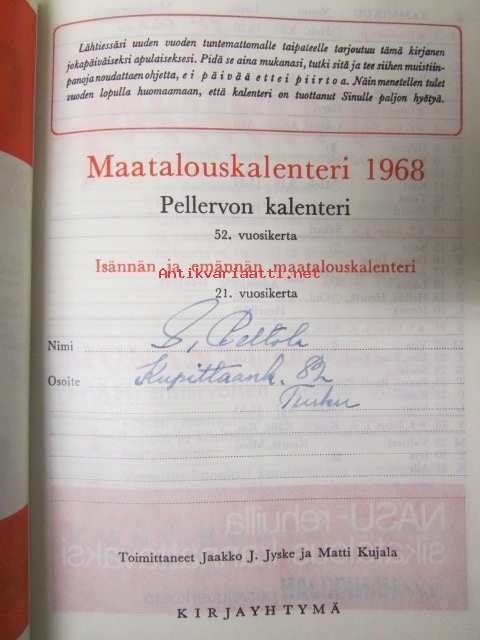 Lähtiessäsi uuden vuoden tuntemattomalle taipaleelle tarjoutuu tämä kirjanen
jokapäiväiseksi apulaiseksesi. Pidä se aina mukanasi, tutki sitä ja tee siihen muistiin-
panoja noudattaen ohjetta, ei päivää ettei piirtoa. Näin menetellen tulet
vuoden lopulla huomaamaan, että kalenteri on tuottanut Sinulle paljon hyötyä.
Maatalouskalenteri 1968
Pellervon kalenteri
52. vuosikerta
Isännän ja emännän maatalouskalenteri
Antikvariaatti.net
21. vuosikerta
Nimi S. Peltola
Osoite Kupittaank. 82
Turku
NASU-rehuilla
Toimittaneet Jaakko J. Jyske ja Matti Kujala
KIRJAYHTYMÄ